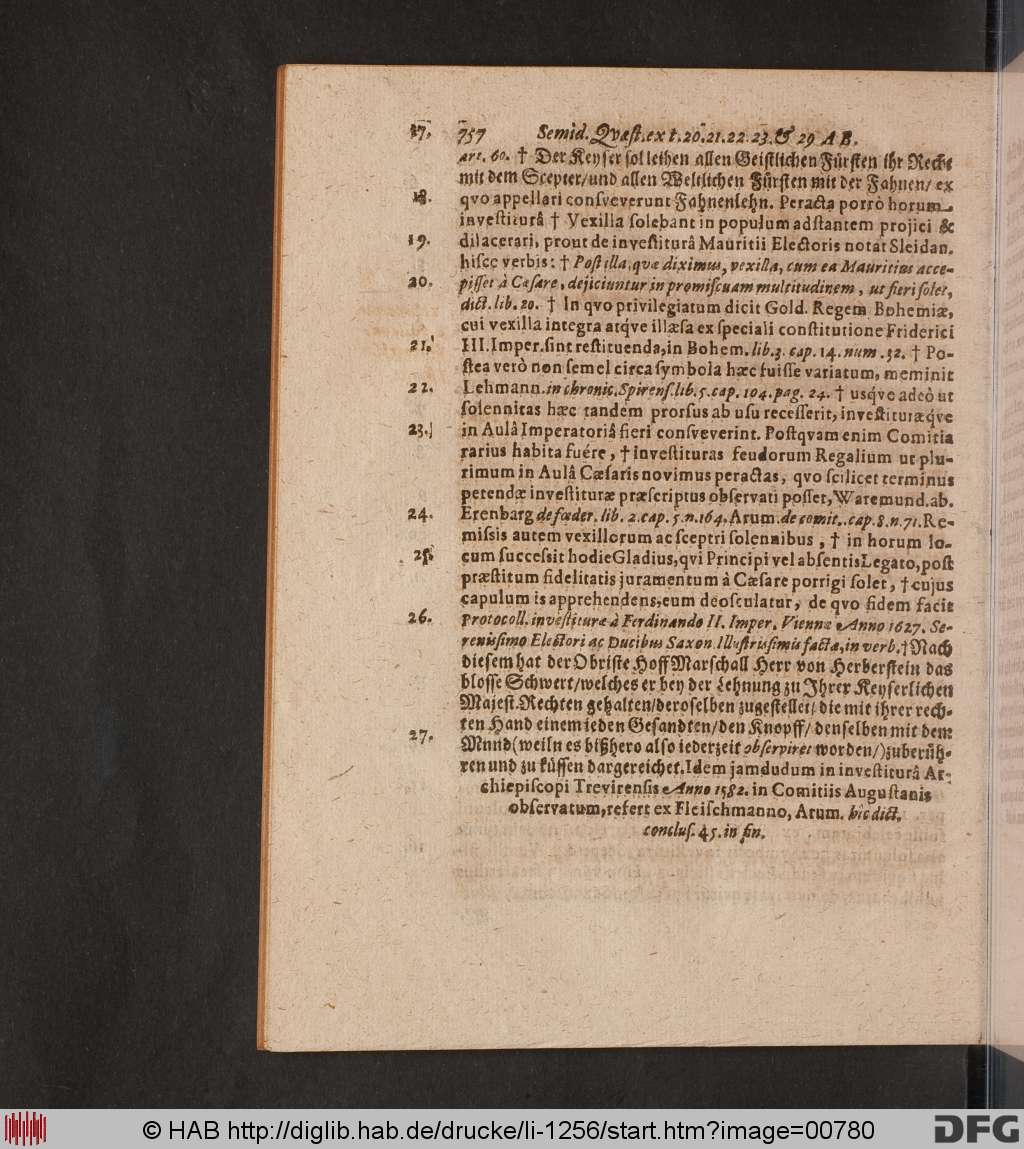 17. 757 Semid. Qvæst. ex t. 20. 21. 22. 23. & 29 A B.
art. 60. † Der Keyser sol leihen allen Geistlichen Fürsten ihr Recht
mit dem Scepter/ und allen Weltlichen Fürsten mit der Fahnen/ ex
18. qvo appellari consveverunt Fahnenlehn. Peracta porrò horum
investiturâ † Vexilla solebant in populum adstantem projici &
19. dilacerari, prout de investiturâ Mauritii Electoris notat Sleidan.
hisce verbis: † Post illa, qvæ diximus, vexilla, cum ea Mauritius acce-
20. pisset à Cæsare, dejiciuntur in promiscuam multitudinem, ut fieri solet,
dict. lib. 20. † In qvo privilegiatum dicit Gold. Regem Bohemiæ,
cui vexilla integra atqve illæsa ex speciali constitutione Friderici
21. III. Imper. sint restituenda, in Bohem. lib. 3. cap. 14. num. 32. † Po-
stea verò non semel circa symbola hæc fuisse variatum, meminit
22. Lehmann. in chronic. Spirens. lib. 5. cap. 104. pag. 24. † usqve adeò ut
solennitas hæc tandem prorsus ab usu recesserit, investituræqve
23. in Aulâ Imperatoriâ fieri consveverint. Postqvam enim Comitia
rarius habita fuére, † investituras feudorum Regalium ut plu-
rimum in Aulâ Cæsaris novimus peractas, qvo scilicet terminus
petendæ investituræ præscriptus observati posset, Waremund. ab.
24. Erenbarg de fœder. lib. 2. cap. 5. n. 164. Arum. de comit. cap. 8. n. 71. Re-
missis autem vexillorum ac sceptri solennibus, † in horum lo-
25. cum successit hodie Gladius, qvi Principi vel absentis Legato, post
præstitum fidelitatis juramentum à Cæsare porrigi solet, † cujus
capulum is apprehendens, eum deosculatur, de qvo fidem facit
26. Protocoll. investituræ à Ferdinando II. Imper. Viennæ Anno 1627. Se-
renissimo Electori ac Ducibus Saxon. Illustrissimis factæ, in verb. † Nach
diesem hat der Obriste Hoff Marschall Herr von Herberstein das
blosse Schwert/ welches er bey der Lehnung zu Ihrer Keyserlichen
Majest. Rechten gehalten/ deroselben zugestellet/ die mit ihrer rech-
ten Hand einem ieden Gesandten/ den Knopff/ denselben mit dem
27. Mnnd (weiln es bißhero also iederzeit observiret worden/) zuberüh-
ren und zu küssen dargereichet. Idem jamdudum in investiturâ Ar-
chiepiscopi Trevirensis Anno 1582. in Comitiis Augustanis
observatum, refert ex Fleischmanno, Arum. hic dict.
conclus. 45. in fin.
© HAB http://diglib.hab.de/drucke/li-1256/start.htm?image=00780
DFG